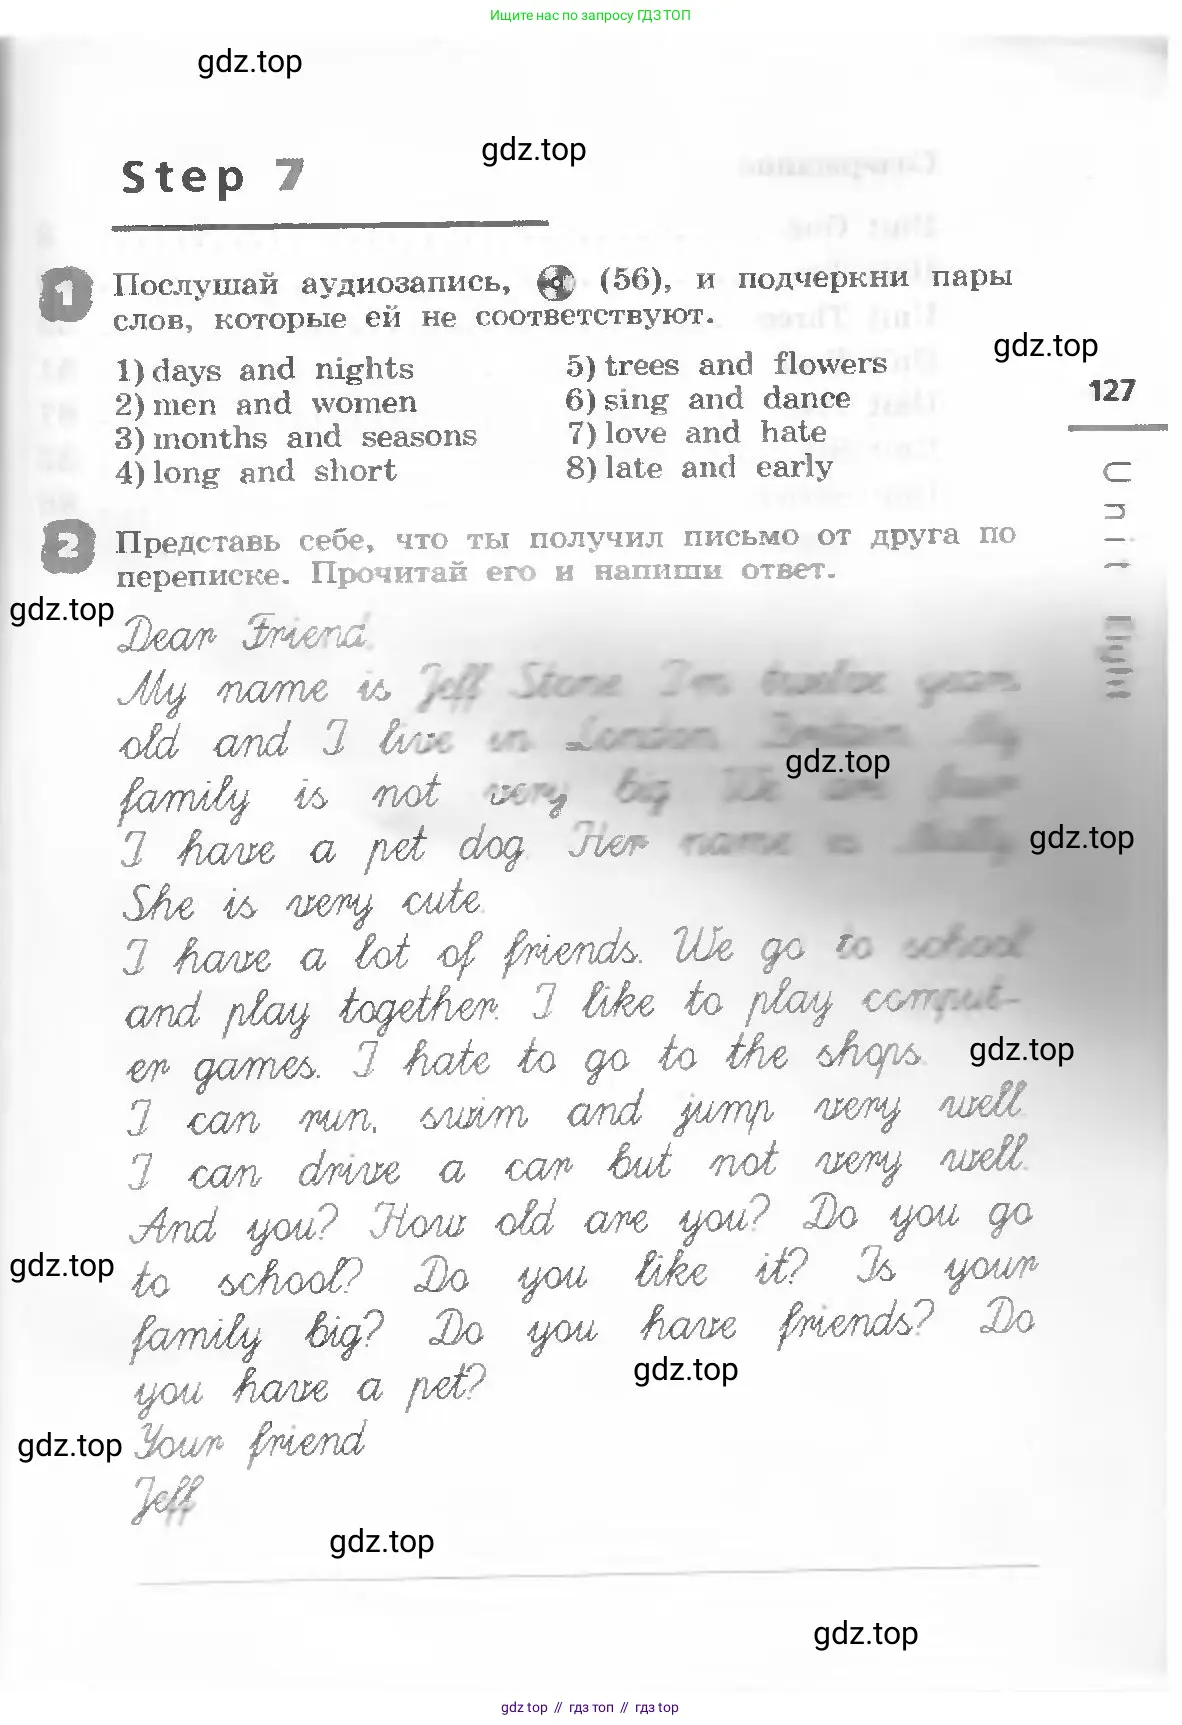 Ищите нас по запросу ГДЗ ТОП
gdz.top
gdz.top
Step 7
1 Послушай аудиозапись, (56), и подчеркни пары
слов, которые ей не соответствуют.
gdz.top
1) days and nights
2) men and women
3) months and seasons
4) long and short
5) trees and flowers
6) sing and dance
7) love and hate
8) late and early
127
Unit Eight
2 Представь себе, что ты получил письмо от друга по
переписке. Прочитай его и напиши ответ.
gdz.top
Dear Friend,
My name is Jeff Stone I'm twelve years
old and I live in London Britain My
gdz.top
family is not very big We are four
I have a pet dog. Her name is
gdz.top
She is very cute.
I have a lot of friends. We go to school
and play together. I like to play comput-
er games. I hate to go to the shops.
gdz.top
I can run, swim and jump very well
I can drive a car but not very well.
And you? How old are you? Do you go
to school? Do you like it? Is your
gdz.top
family big? Do you have friends? Do
you have a pet?
gdz.top
Your friend
gdz.top
Jeff
gdz.top
gdz.top
gdz top // гдз топ // гдз top